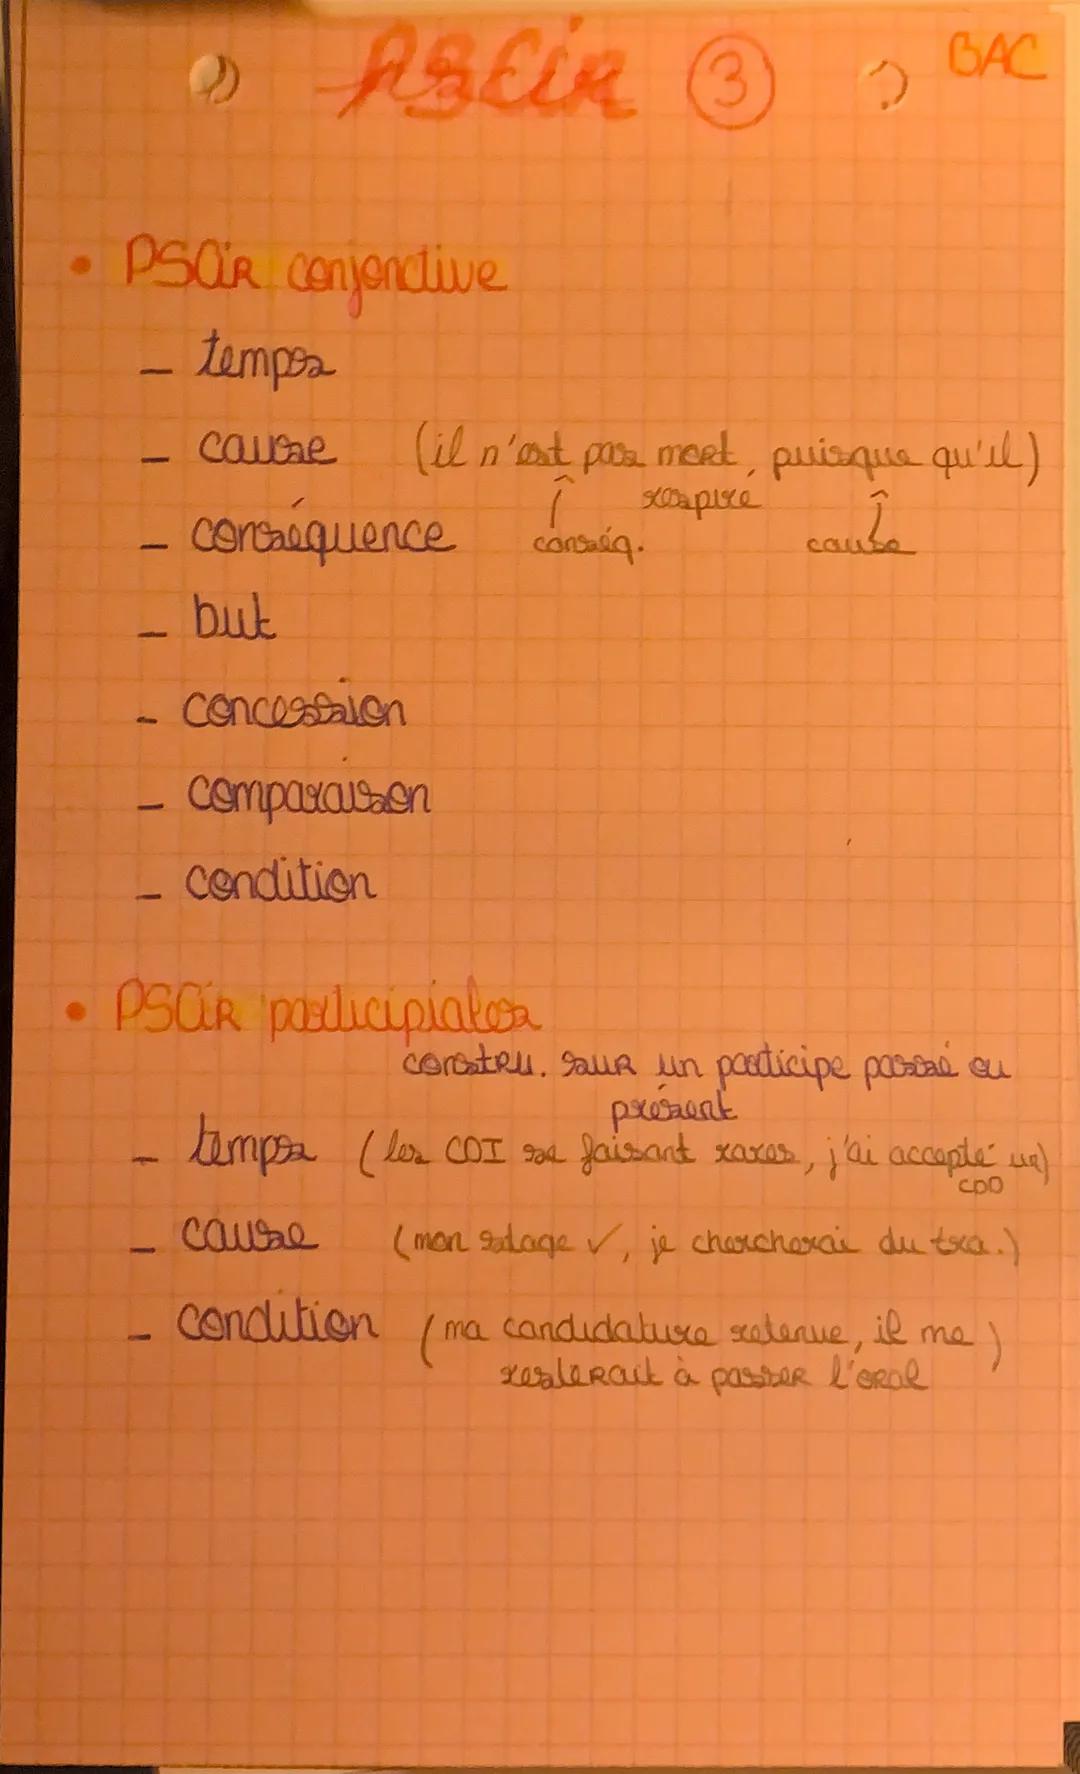 PSCir ③ BAC
• PSCir conjonctive
– temps
– cause (il n'est pas mort, puisque qu'il)
respire
– conséquence conséq. cause
– but
– concession
– comparaison
– condition
• PSCir participiales
constru. sur un participe passé ou
présent
– temps (les CDI se faisant rares, j'ai accepté un)
CDD
– cause (mon stage ✓, je chercherai du tra.)
– condition (ma candidature retenue, il me)
resterait à passer l'oral